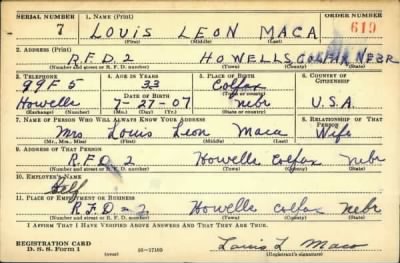 SERIAL NUMBER 1. NAME (Print) ORDER NUMBER
7 LOUIS LEON MACA 619
(First) (Middle) (Last)
2. ADDRESS (Print)
R.F.D. 2 HOWELLS, COLFAX NEBR
(Number and street or R. F. D. number) (Town) (County) (State)
3. TELEPHONE 4. AGE IN YEARS 5. PLACE OF BIRTH 6. COUNTRY OF CITIZENSHIP
99F5 33 Colfax
DATE OF BIRTH (Town or county)
Howells 7-27-07 Nebr U.S.A.
(Exchange) (Number) (Mo.) (Day) (Yr.) (State or country)
7. NAME OF PERSON WHO WILL ALWAYS KNOW YOUR ADDRESS 8. RELATIONSHIP OF THAT PERSON
Mrs Louis Leon Maca Wife
(Mr., Mrs., Miss) (First) (Middle) (Last)
9. ADDRESS OF THAT PERSON
R.F.D 2 Howells Colfax Nebr
(Number and street or R. F. D. number) (Town) (County) (State)
10. EMPLOYER'S NAME
Self
11. PLACE OF EMPLOYMENT OR BUSINESS
R.F.D - 2 Howells Colfax Nebr
(Number and street or R. F. D. number) (Town) (County) (State)
I AFFIRM THAT I HAVE VERIFIED ABOVE ANSWERS AND THAT THEY ARE TRUE.
REGISTRATION CARD
D. S. S. Form 1 16-17105 Louis L Maca
(over) (Registrant's signature)